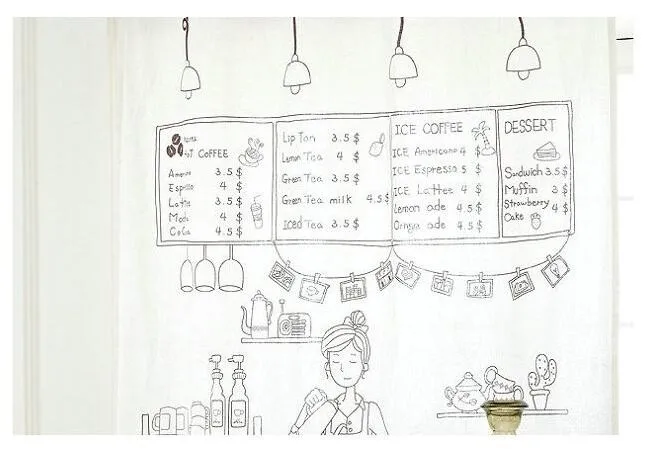 COFFEE
3.5 $
4 $
Latte 3.5 $
4 $
CoCa 4.5 $
Lip Ton 3.5 $
Lemon Tea 4 $
Green Tea 3.5 $
Green Tea milk 4.5 $
Iced Tea 3.5 $
ICE COFFEE
ICE Americano 4 $
ICE Espresso 5 $
ICE Lattee 4 $
Lemon ade 4.5 $
ade 4.5 $
DESSERT
Sandwich 3.5 $
Muffin 3 $
Strawberry
Cake 4 $